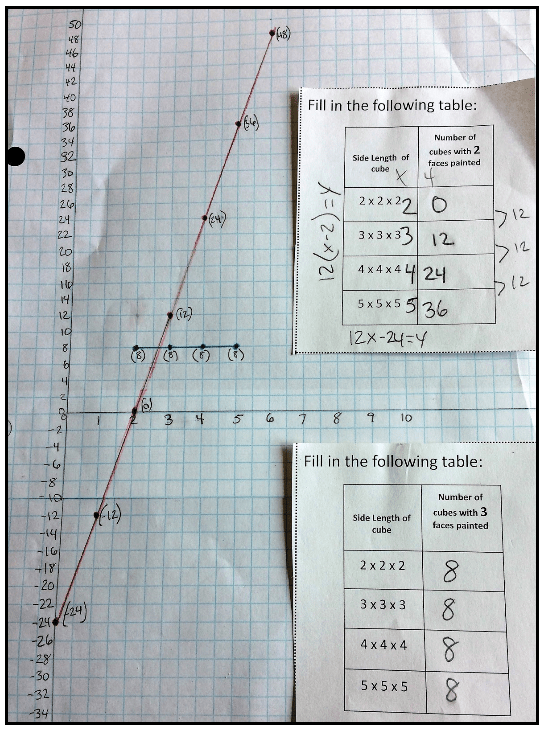 50
48
46
44
42
40
38
36
34
32
30
28
26
24
22
20
18
16
14
12
10
8
6
4
2
0
-2
-4
-6
-8
-10
-12
-14
-16
-18
-20
-22
-24
-26
-28
-30
-32
-34
1 2 3 4 5 6 7 8 9 10
(48)
(36)
(24)
(12)
(8) (8) (8) (8)
(0)
(-12)
(-24)
Fill in the following table:
Side Length of cube x
Number of cubes with 2 faces painted y
2 x 2 x 2 2 0
3 x 3 x 3 3 12
4 x 4 x 4 4 24
5 x 5 x 5 5 36
12
12
12
12(x-2)=y
12x-24=y
Fill in the following table:
Side Length of cube
Number of cubes with 3 faces painted
2 x 2 x 2 8
3 x 3 x 3 8
4 x 4 x 4 8
5 x 5 x 5 8